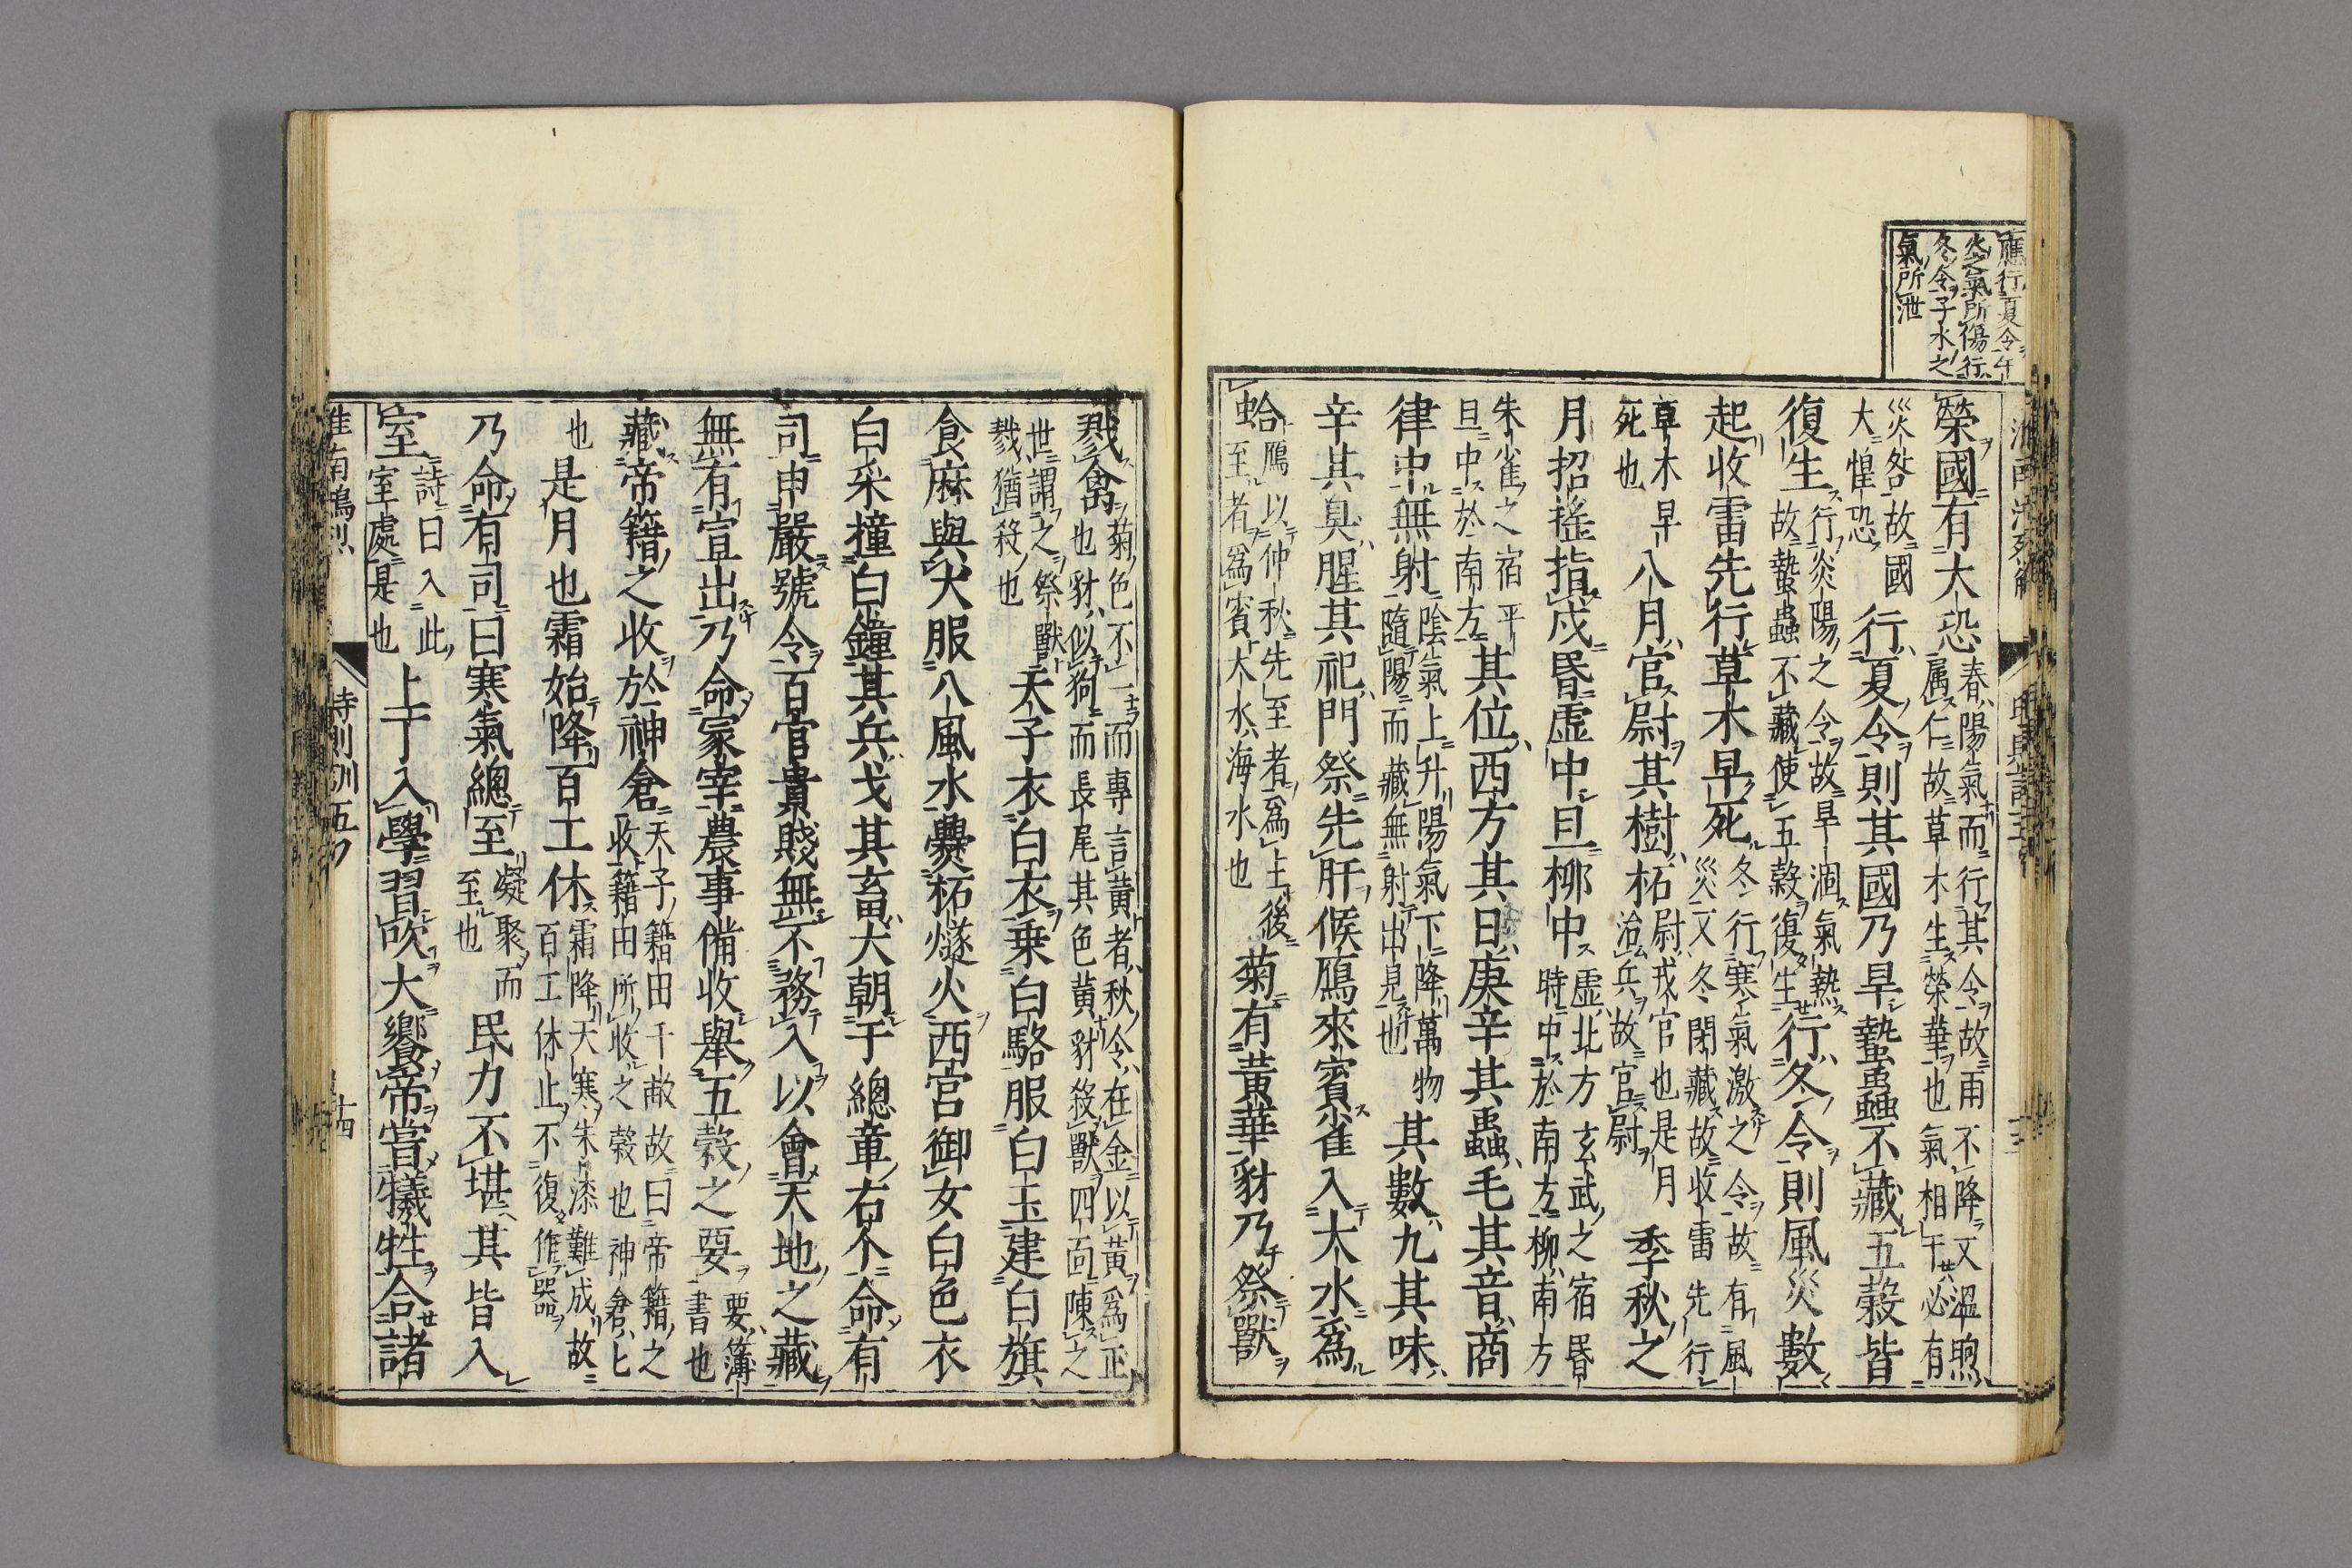 應行夏令午
火之氣所傷行
冬令子水之
氣所泄
榮國有大恐春陽氣而行其令故雨不降又溫煦
属仁故草木生榮華也氣相干必有
災咎故國
大惶恐行夏令則其國乃旱蟄蟲不藏五穀皆
復生行炎陽之令故旱涸氣熱
故蟄蟲不藏使五穀復生行冬令則風災數
起收雷先行草木早死冬行寒氣激之令故有風
災又冬閉藏故收雷先行
草木早
死也八月官尉其樹柘尉戎官也是月
治兵故官尉季秋之
月招搖指戍昏虛中旦柳中虛北方玄武之宿昏
時中於南方柳南方
朱雀之宿平
旦中於南方其位西方其日庚辛其蟲毛其音商
律中無射陰氣上升陽氣下降萬物
隨陽而藏無射出見也其數九其味
辛其臭腥其祀門祭先肝候鴈來賓雀入大水爲
蛤鴈以仲秋先至者爲主後
至者爲賓大水海水也菊有黃華豺乃祭獸
戮禽菊色不一而專言黃者秋令在金以黃爲正
也豺似狗而長尾其色黃豺殺獸四面陳之
世謂之祭獸
戮猶殺也天子衣白衣乗白駱服白玉建白旗
食麻與犬服八風水爨柘燧火西宮御女白色衣
白采撞白鐘其兵戈其畜犬朝于總章右个命有
司申嚴號令百官貴賤無不務入以會天地之藏
無有宣出乃命冢宰農事備收舉五穀之要要簿
書也
藏帝籍之收於神倉天子籍田千畝故曰帝籍之
收籍田所收之穀也神倉匕
也是月也霜始降百工休霜降天寒朱漆難成故
百工休止不復作器
乃命有司曰寒氣總至凝聚而
至也民力不堪其皆入
室詩曰入此
室處是也上丁入學習吹大饗帝嘗犧牲合諸
南鴻烈 時則訓五 十四